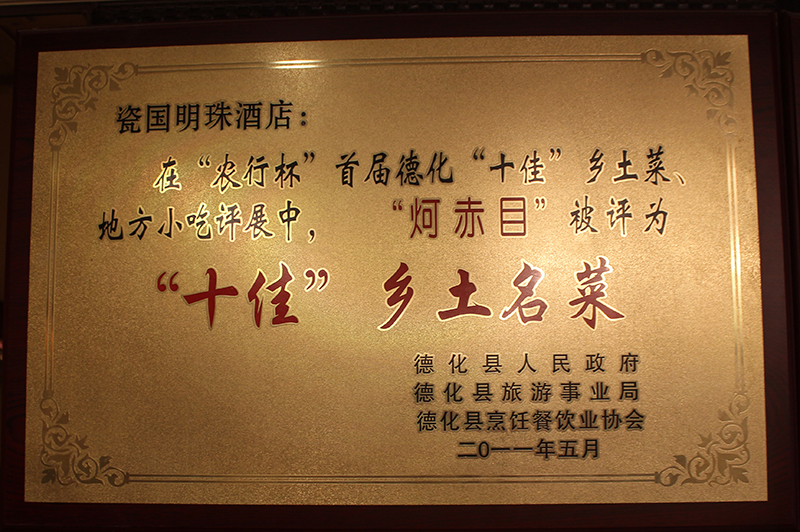 瓷国明珠酒店：
在“农行杯”首届德化“十佳”乡土菜、
地方小吃评展中，“炣赤目”被评为
“十佳”乡土名菜
德化县人民政府
德化县旅游事业局
德化县烹饪餐饮业协会
二0一一年五月